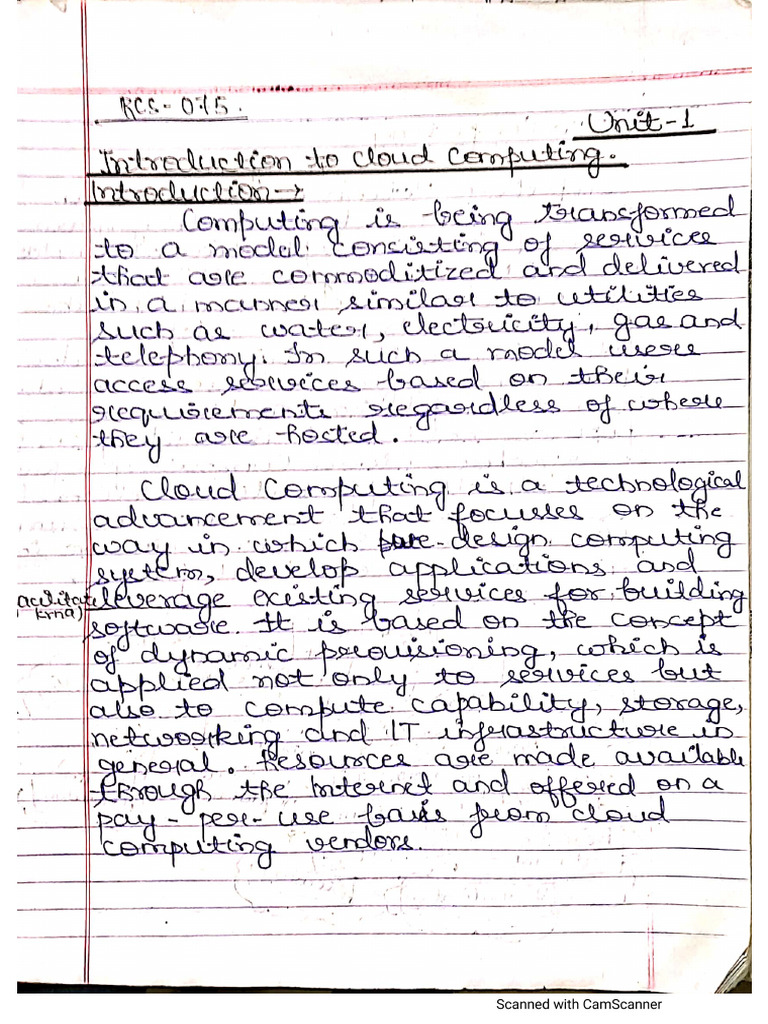 RCS-075.
Unit-1
Introduction to cloud computing.
Introduction→
Computing is being transformed
to a model consisting of services
that are commoditized and delivered
in a manner similar to utilities
such as water, electricity, gas and
telephony. In such a model users
access services based on their
requirements regardless of where
they are hosted.
Cloud Computing is a technological
advancement that focusses on the
way in which design computing
system, develop applications and
leverage existing services for building
(acilitate
krna)
software. It is based on the concept
of dynamic provisioning, which is
applied not only to services but
also to compute capability, storage,
networking and IT infrastructure in
general. Resources are made available
through the Internet and offered on a
pay-per-use basis from cloud
computing vendors.
Scanned with CamScanner